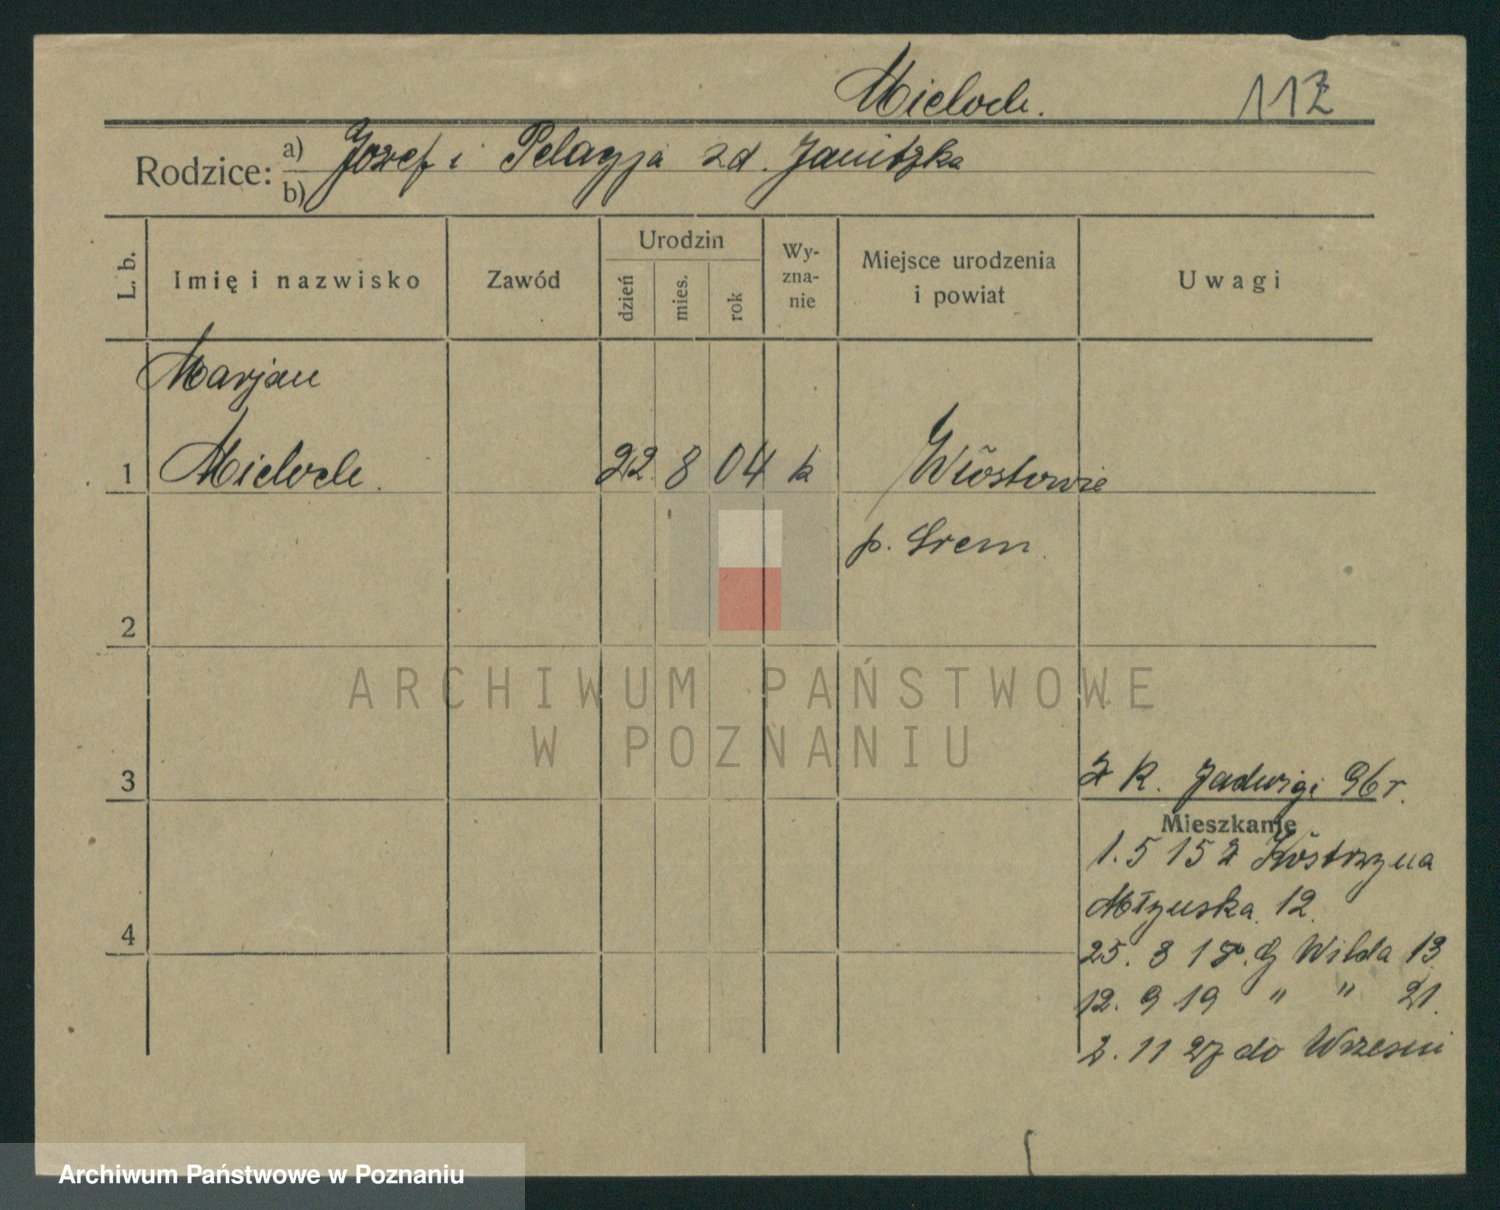 Mieloch. 112
Rodzice: a) Józef i Pelagja zd. Janitzka
b)
L. b. Imię i nazwisko Zawód Urodzin dzień mies. rok Wyznanie Miejsce urodzenia i powiat Uwagi
Marjan
1 Mieloch. 22 8 04 k Włostowie
p. Srem
2
ARCHIWUM PAŃSTWOWE
W POZNANIU
3 z k. Jadwigi 96 r.
Mieszkanie
1. 5 15 z Kostrzyna
4 12.
25. 3 18. G Wilda 13
12. 9 19 " " 21.
2. 11 27 do Wrzesni
Archiwum Państwowe w Poznaniu